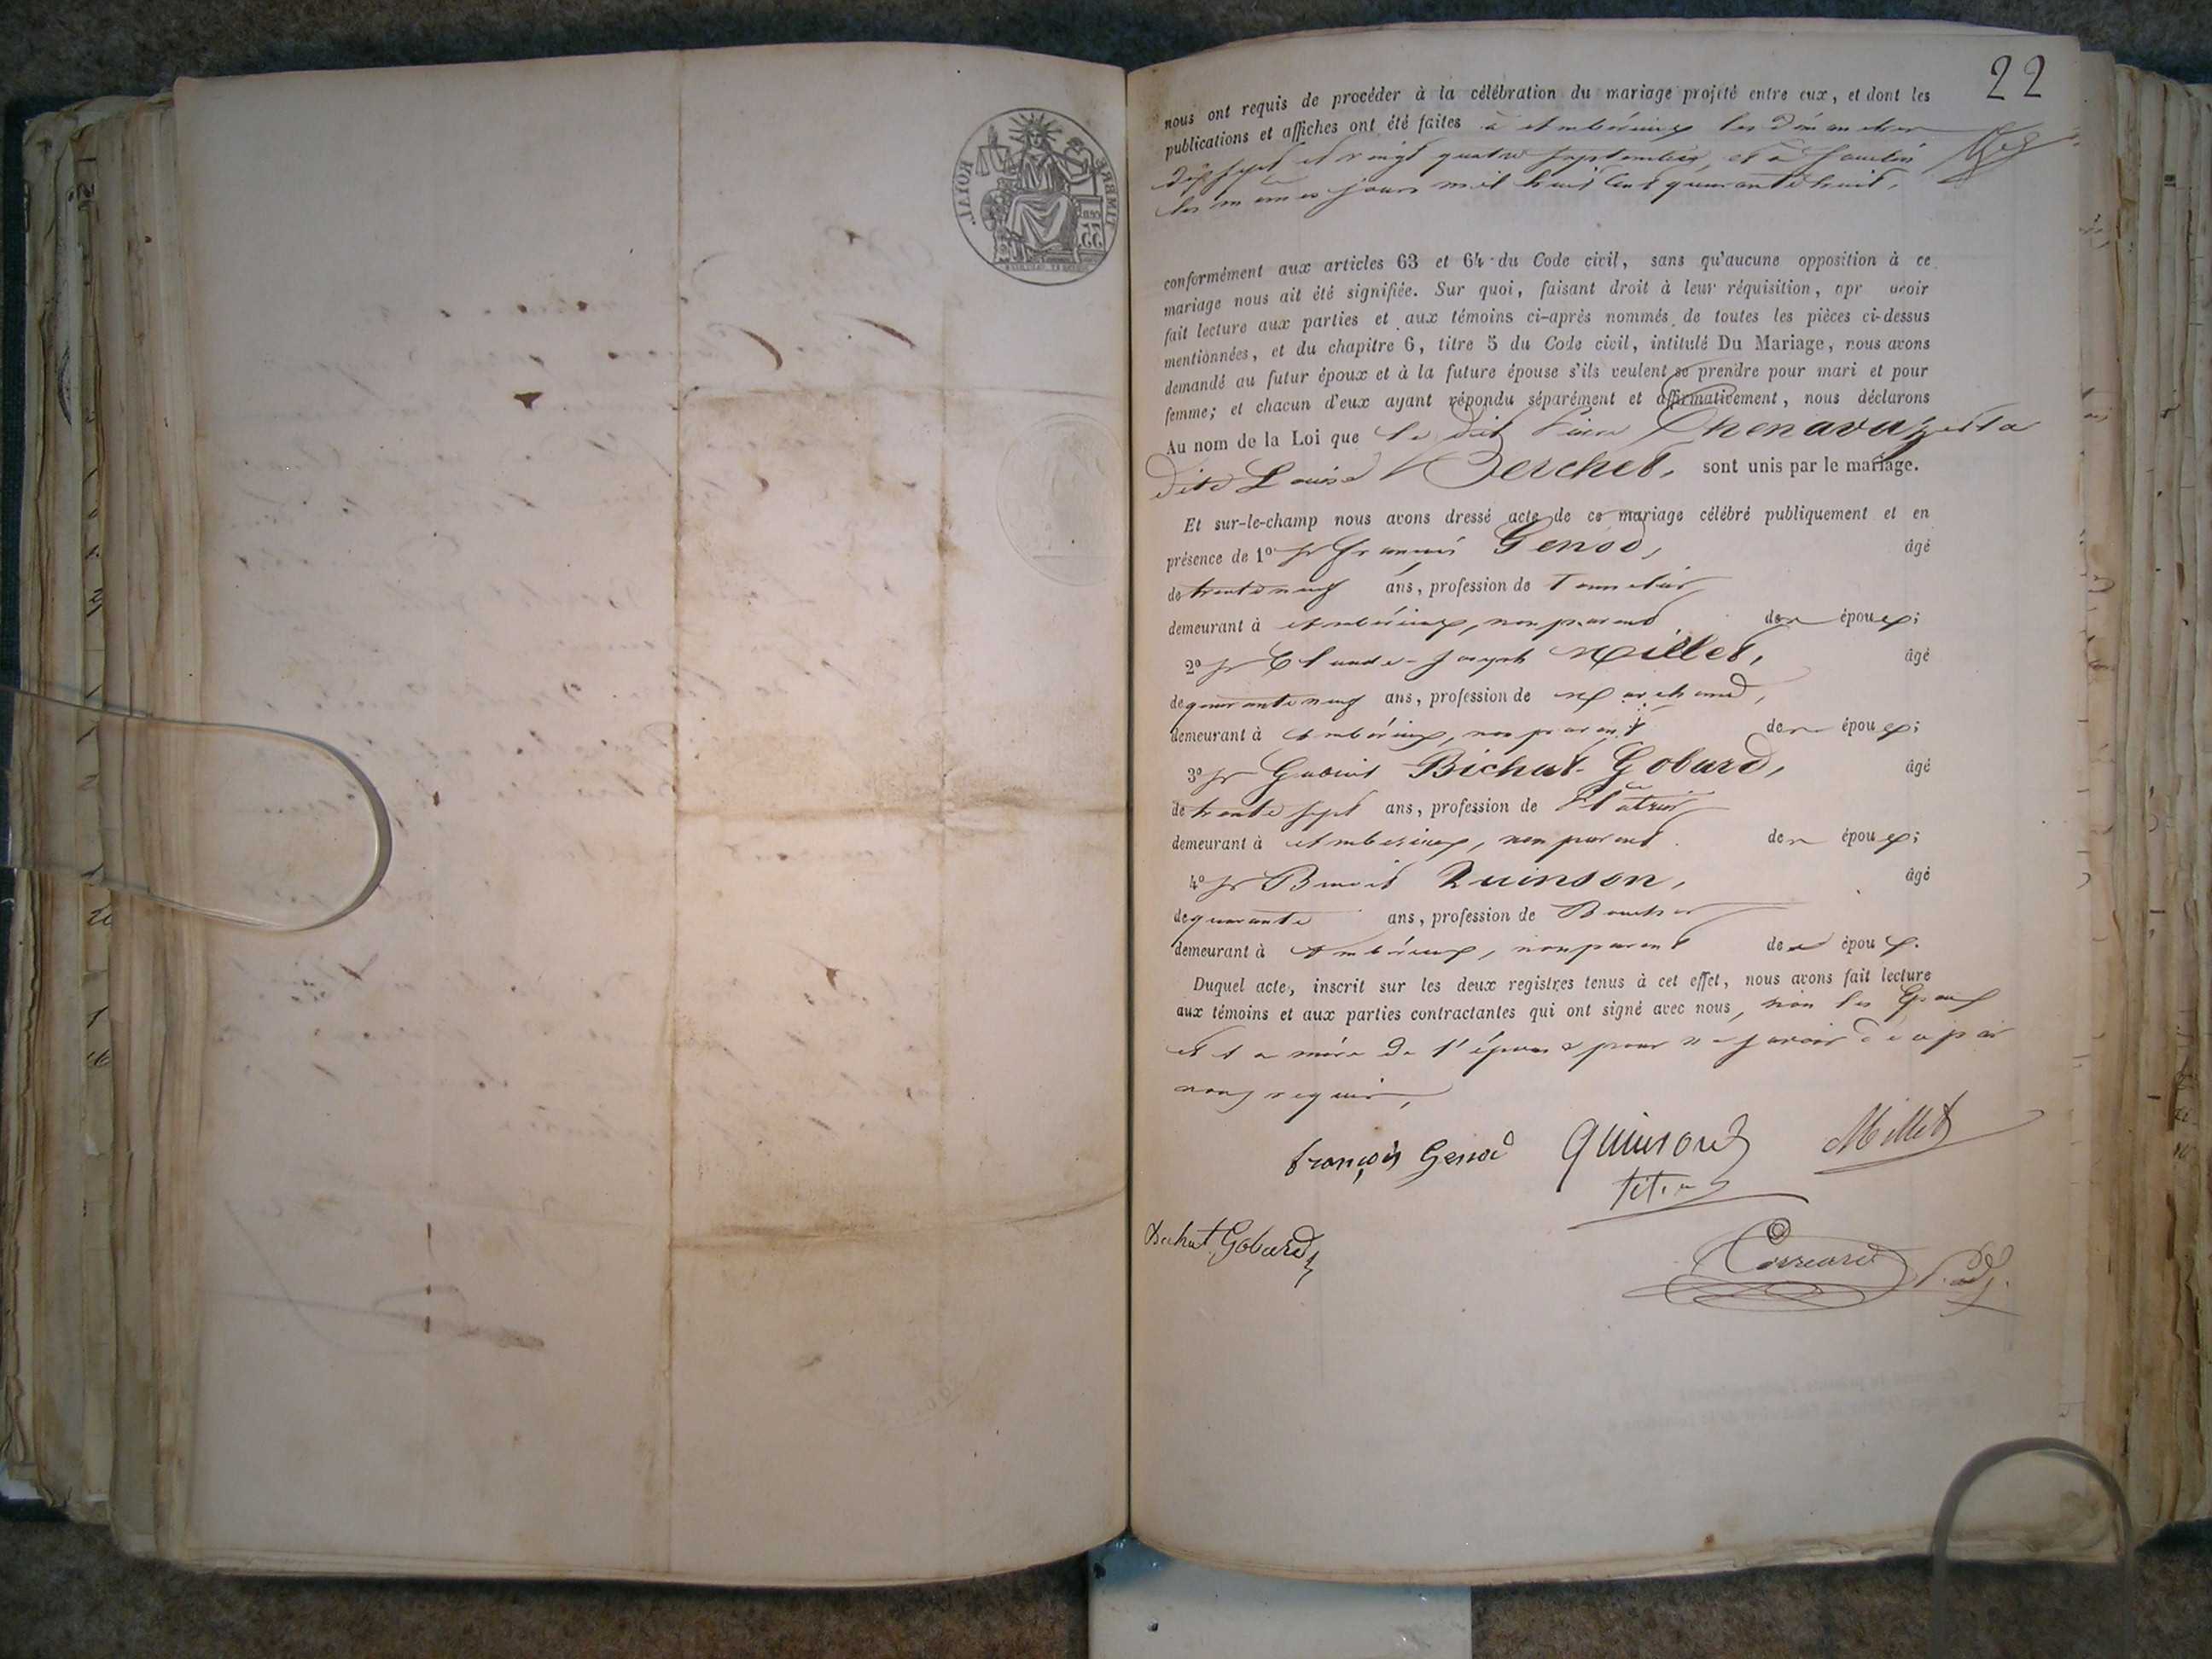 TIMBRE ROYAL
22
nous ont requis de procéder à la célébration du mariage projeté entre eux, et dont les
publications et affiches ont été faites à Ambérieux les dimanches
dix sept et vingt quatre septembre, et à
les mêmes jours mil huit cent quarante huit,
conformément aux articles 63 et 64 du Code civil, sans qu'aucune opposition à ce
mariage nous ait été signifiée. Sur quoi, faisant droit à leur réquisition, apr avoir
fait lecture aux parties et aux témoins ci-après nommés de toutes les pièces ci-dessus
mentionnées, et du chapitre 6, titre 5 du Code civil, intitulé Du Mariage, nous avons
demandé au futur époux et à la future épouse s'ils veulent se prendre pour mari et pour
femme; et chacun d'eux ayant répondu séparément et affirmativement, nous déclarons
Au nom de la Loi que le dit Pierre Chenavaz et la
dite Louise Berchet, sont unis par le mariage.
Et sur-le-champ nous avons dressé acte de ce mariage célébré publiquement et en
présence de 1º Sr François Genod, âgé
de trente neuf ans, profession de Tonnelier
demeurant à Ambérieux, non parent des époux;
2º Sr Claude-Joseph Millet, âgé
de quarante neuf ans, profession de Marchand,
demeurant à Ambérieux, non parent des époux;
3º Sr Gabriel Bichat-Gobard, âgé
de trente sept ans, profession de Plâtrier
demeurant à Ambérieux, non parent des époux;
4º Sr Benoit Quinson, âgé
de quarante ans, profession de Boucher
demeurant à Ambérieux, non parent des époux.
Duquel acte, inscrit sur les deux registres tenus à cet effet, nous avons fait lecture
aux témoins et aux parties contractantes qui ont signé avec nous, non les époux
et la mère de l'épouse pour ne savoir de ce par
nous requis,
françois Genod quinson Millet
Bichat Gobard
Correard